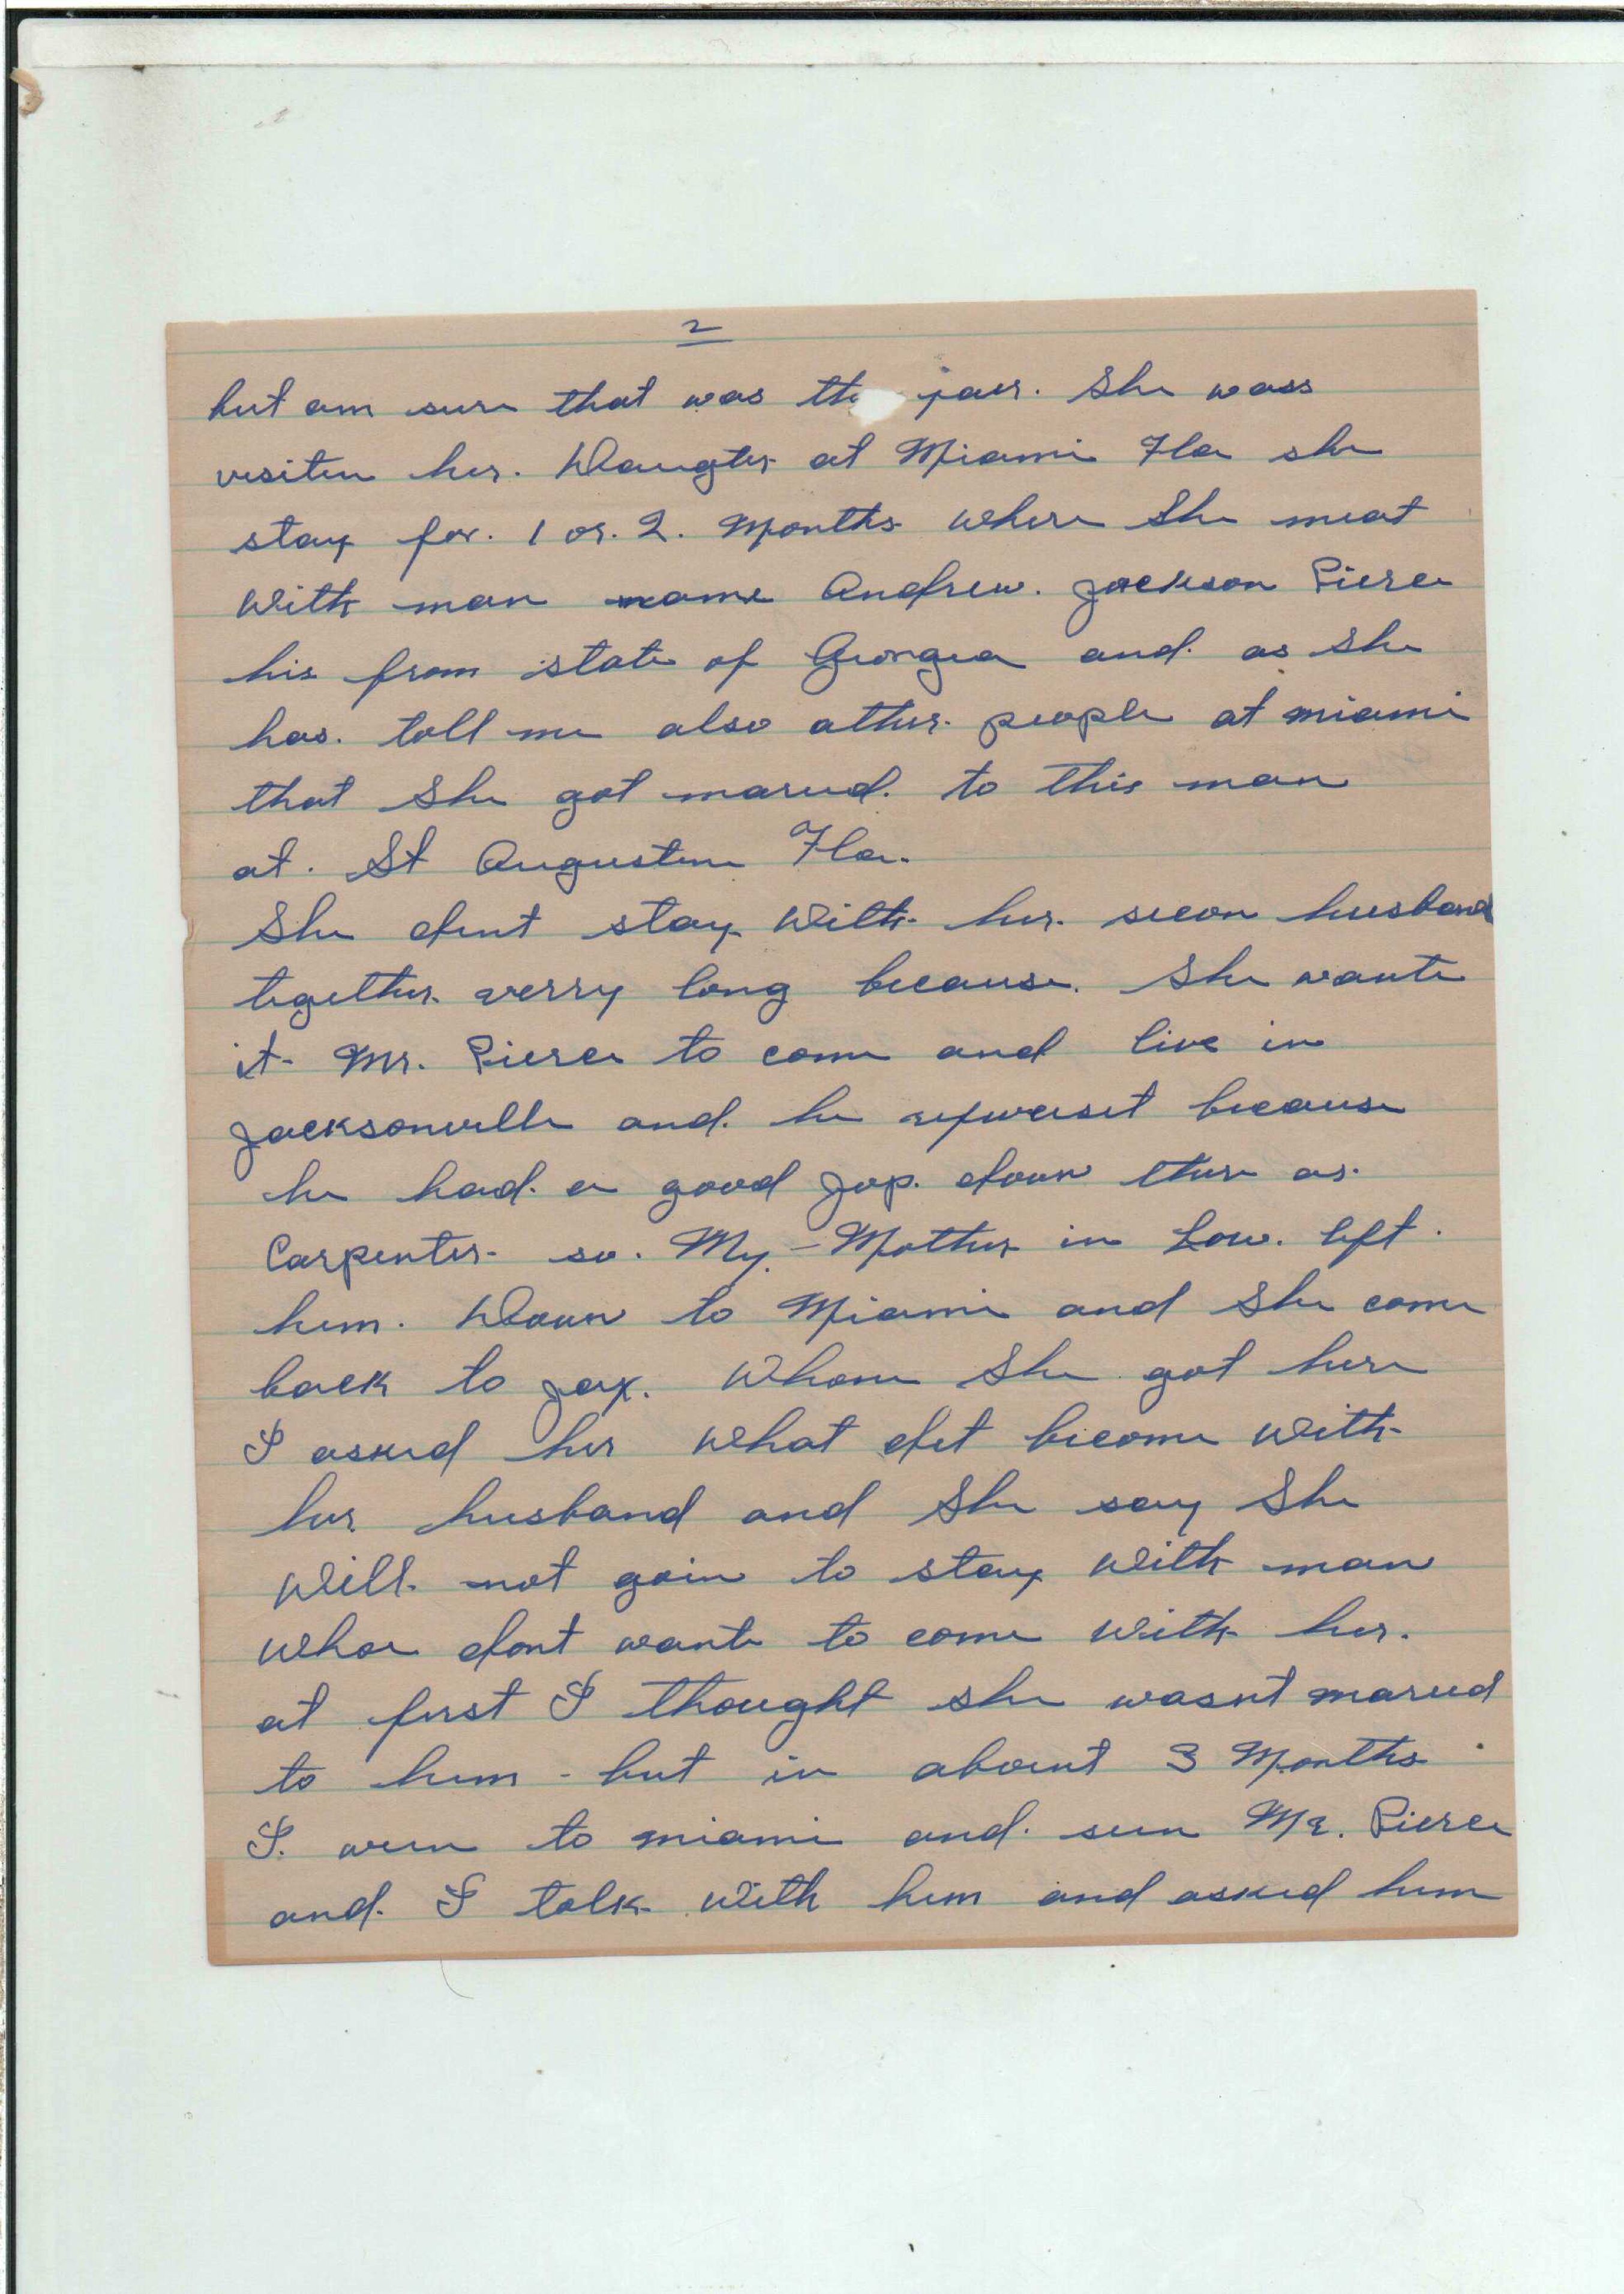 2
but am sure that was the jear. She wass
visiten her. Daugter at Miami Fla she
stay for. 1 or. 2. Months where She meat
With man name Andrew. Jackson Pierce
his from state of Georgea and. as She
has. toll me also other. people at miami
that She got maried. to this man
at. St Augustine Fla.
She dint stay With her. secon husband
together. verry long because. She wante
it Mr. Pierce to come and live in
Jacksonville and. he because
he had. a good Jop. down there as.
Carpenter so. My - Mother in Low. left.
him. Down to Miami and She come
back to Jax. Whone She got here
I asked her What det become With
her husband and She say She
Will. not goin to stay With man
Whoe dont wante to come With her.
at first I thought she wasnt maried
to him - but in about 3 Months.
I. wen to miami and. seen Mr. Pierce
and. I talk With him and asked him